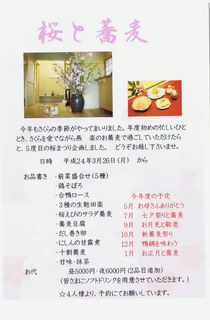 桜と蕎麦
今年もさくらの季節がやってまいりました。年度初めの忙しいひと
とき、さくらを愛でながら燕　楽のお蕎麦で過ごしていただけたら
と、5度目の桜まつり企画しました。　どうぞお越し下さいませ。
日時　平成24年3月26日(月)　から
お品書き・前菜盛合せ(5種)
・鶏そぼろ
・合鴨ロース
・3種の生麩田楽
・桜えびのサラダ蕎麦
・蕎麦豆腐
・だし巻卵
・にしんの甘露煮
・十割蕎麦
・甘味・抹茶
今年度の予定
5月　お母さんありがとう
7月　七夕祭りと蕎麦
9月　お月見と敬老
10月　新蕎麦祭り
12月　鴨鍋を味わう
1月　お正月と蕎麦
お代　昼5000円・夜6000円(2品目追加)
(皆さまにソフトドリンクを用意させていただきます。)
☆4人様より、予約にてお願いしています。